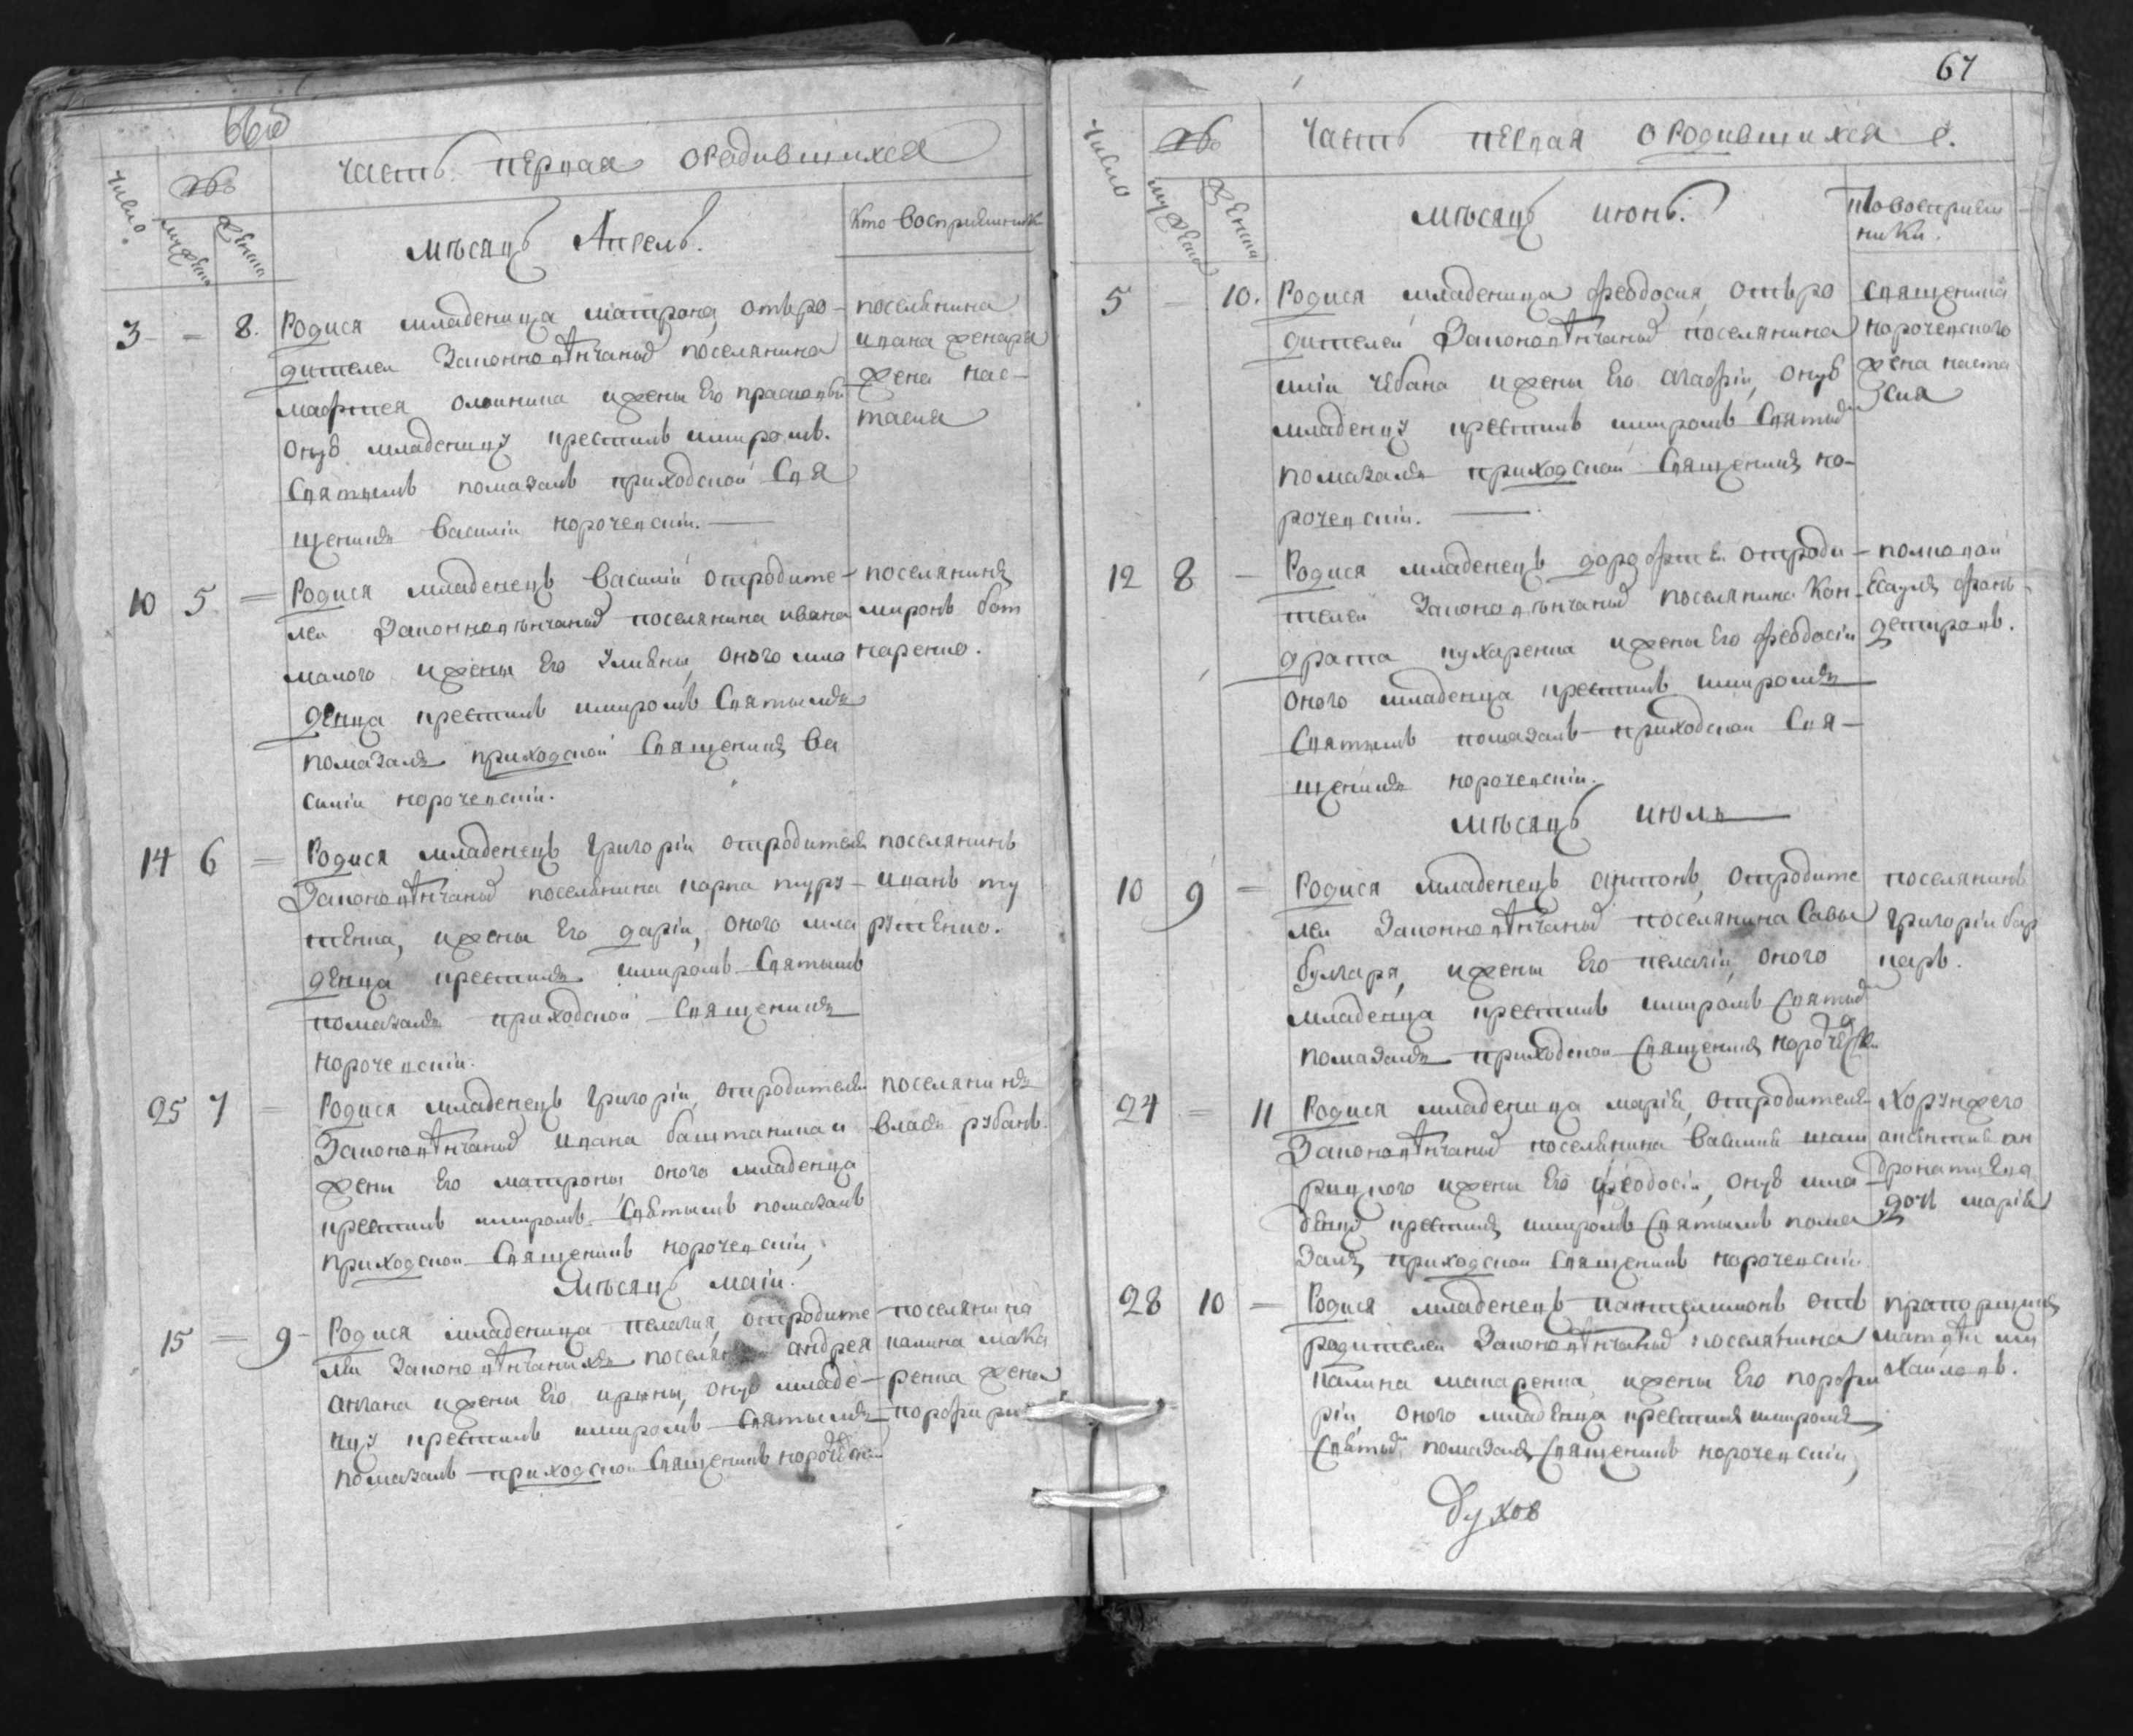 66об
часть первая ородившихся
Число
№
мужеска
женска
мѣсяцъ Апрель.
Кто восприемники
3 - 8. Родися младеница матрона, отъро-
дителей Законновѣнчаныхъ поселянина
мафтея олейника ижены Его прасковьи
онуѣ младеницу крестилъ имиромъ.
Святымъ помазалъ приходской Свя
щеникъ Василій корочевскій.
поселянина
ивана женаря
жена нас-
тасия
10 5 - Родися младенецъ Василій отродите-
лей Законновѣнчаныхъ поселянина ивана
малого ижены Его улияны, оного мла
денца крестилъ имиромъ Святымъ
помазалъ приходской Священикъ Ва
силій корочевскій.
поселянинъ
миронъ бот
наренко.
14 6 - Родися младенецъ Григорій отродителей
Законовѣнчаныхъ поселянина карпа туру-
тенка, ижены Его дарій, оного мла
денца крестилъ имиромъ Святымъ
помазалъ приходской Священикъ
корочевскій.
поселянинъ
иванъ ту
рутенко.
25 7 - Родися младенецъ Григорій, отродителей
Законовѣнчаныхъ ивана баштаника и
жены Его матроны оного младенца
крестилъ имиромъ Святымъ помазалъ
приходской Священикъ корочевскій,
поселянинъ
Власъ рубанъ.
Мѣсяцъ маій.
15 - 9 - Родися младеница пелагия, отродите-
лей Законовѣнчаныхъ андрея
ангана ижены Его ирины, онуѣ младе-
ницу крестилъ имиромъ Святымъ
помазалъ приходской Священикъ корочевскій
поселянина
калина мака
ренка жена
порфирия
67
Число
№
мужеска
женска
часть первая ородившихся е.
мѣсяцъ июнь.
ктовосприем
ники.
5 - 10. Родися младеница феодосия, отъро
дителей Законовѣнчаныхъ поселянина
илій чебана ижены Его агафій, онуѣ
младеницу крестилъ имиромъ Святымъ
помазалъ приходской Священикъ ко-
рочевскій.
священика
корочевского
жена наста
сия
12 8 - Родися младенецъ дорофтей отроди-
телей Законовѣнчаныхъ поселянина Кон-
драта кухаренка ижены Его феодосій
оного младенца крестилъ имиромъ
Святымъ помазалъ приходской Свя-
щеникъ корочевскій.
полковой
Есаулъ
димировъ.
мѣсяцъ июль
10 9 - Родися младенецъ антонъ, отродите
лей Законновѣнчаныхъ поселянина Савы
булгаря, ижены Его пелагій, оного
младенца крестилъ имиромъ Святымъ
помазалъ приходской Священикъ корочевскій
поселянинъ
Григорій бор
царъ.
24 - 11 Родися младеница марія, отродителей
Законовѣнчаныхъ поселянина Василий
ижены Его феодосій, онуѣ мла
деницу крестилъ имиромъ Святымъ пома
залъ приходской Священикъ корочевскій
Хорунжего
дочь мария
28 10 - Родися младенецъ пантелимонъ отъ
родителей Законовѣнчаныхъ поселянина
Калина макаренка, ижены Его порфи
рій, оного младенца крестилъ имиромъ
Святымъ помазалъ Священикъ корочевскій,
прапорщикъ
матвѣй ми
хайловъ.
Духов